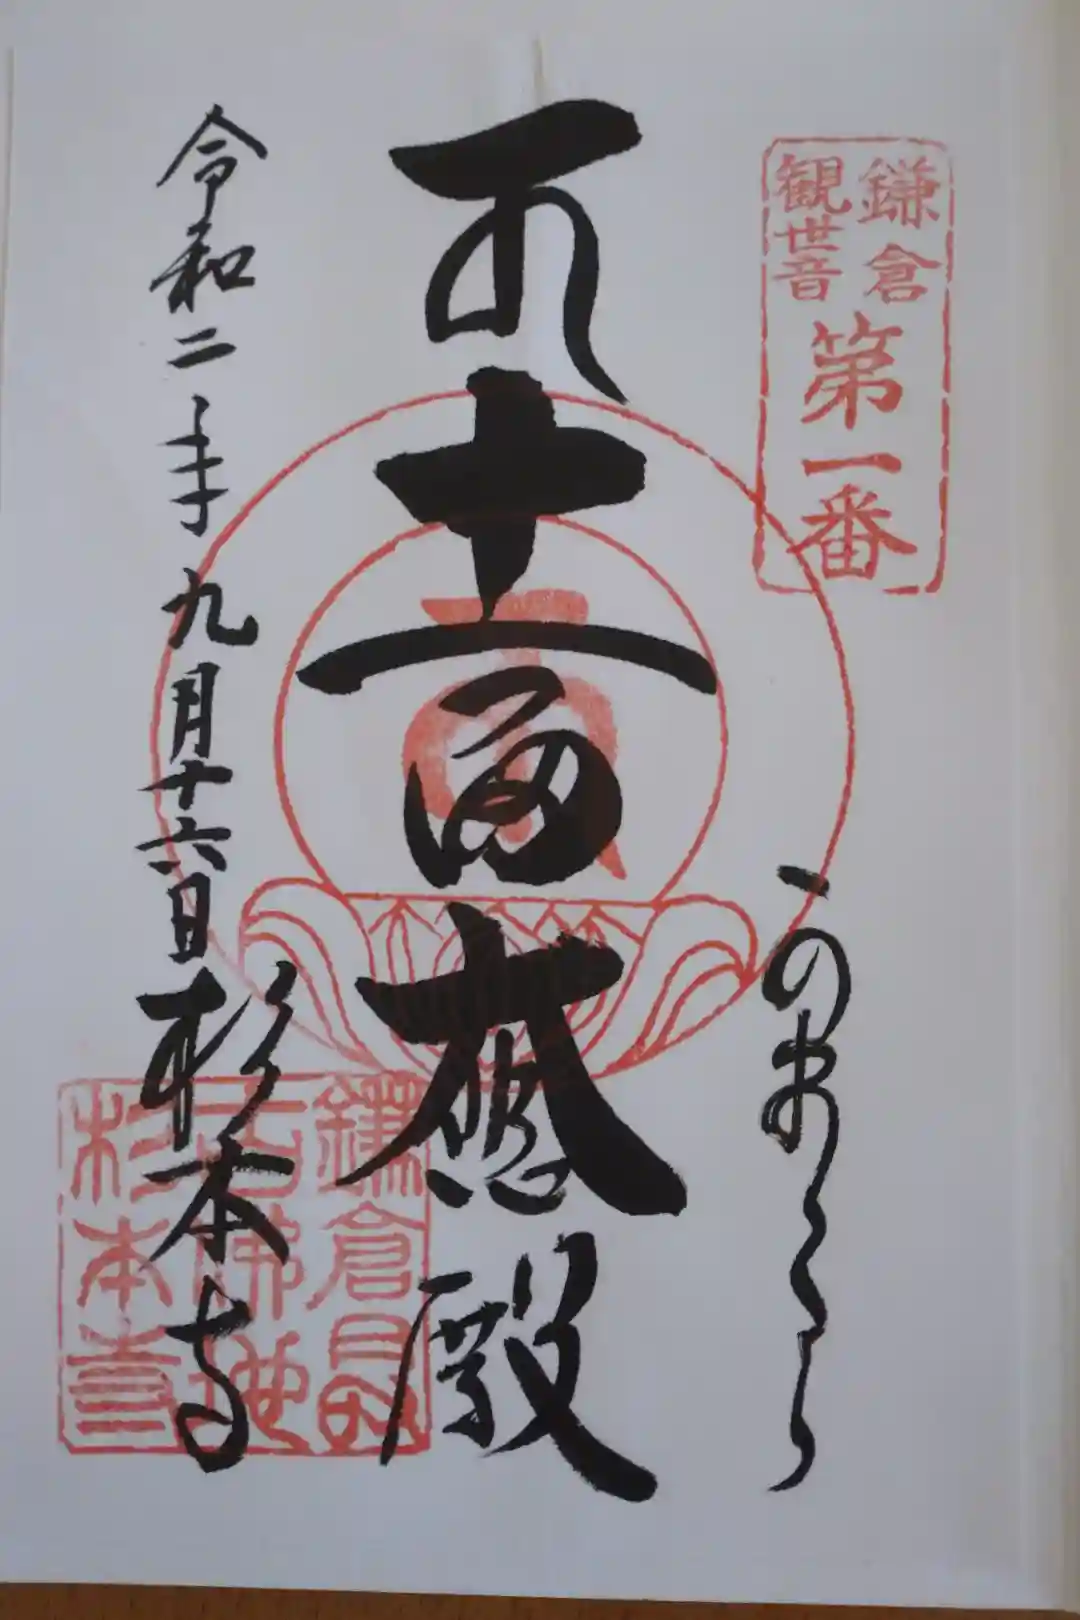 鎌倉
観世音
第一番
かまくら
十一面大悲殿
令和二年九月十六日 杉本寺
鎌倉最
古佛地
杉本寺